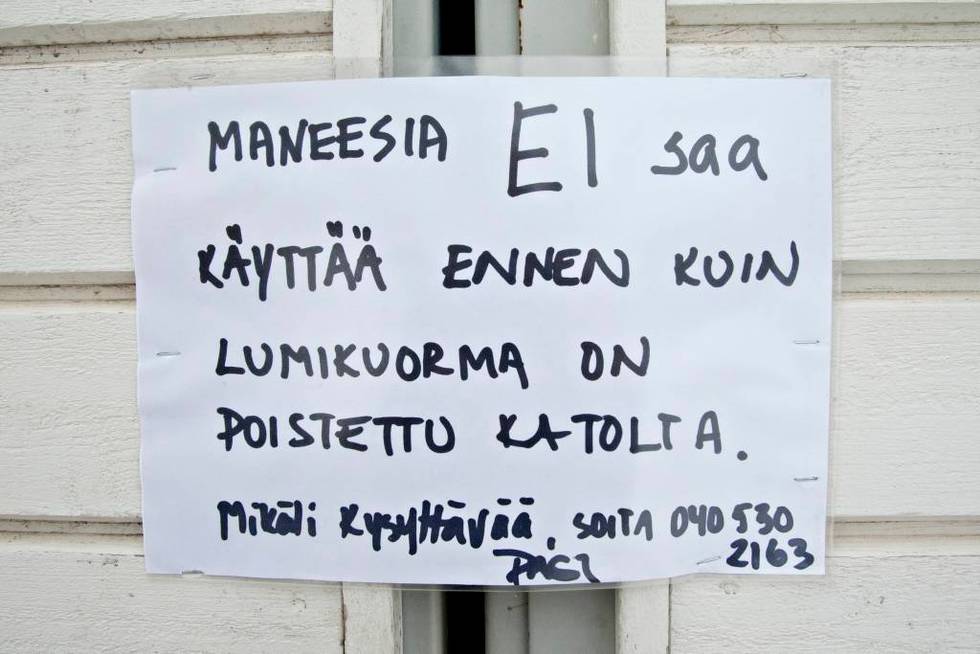 MANEESIA EI saa
KÄYTTÄÄ ENNEN KUIN
LUMIKUORMA ON
POISTETTU KATOLTA.
Mikäli kysyttävää, SOITA 040 530
2163
PASI